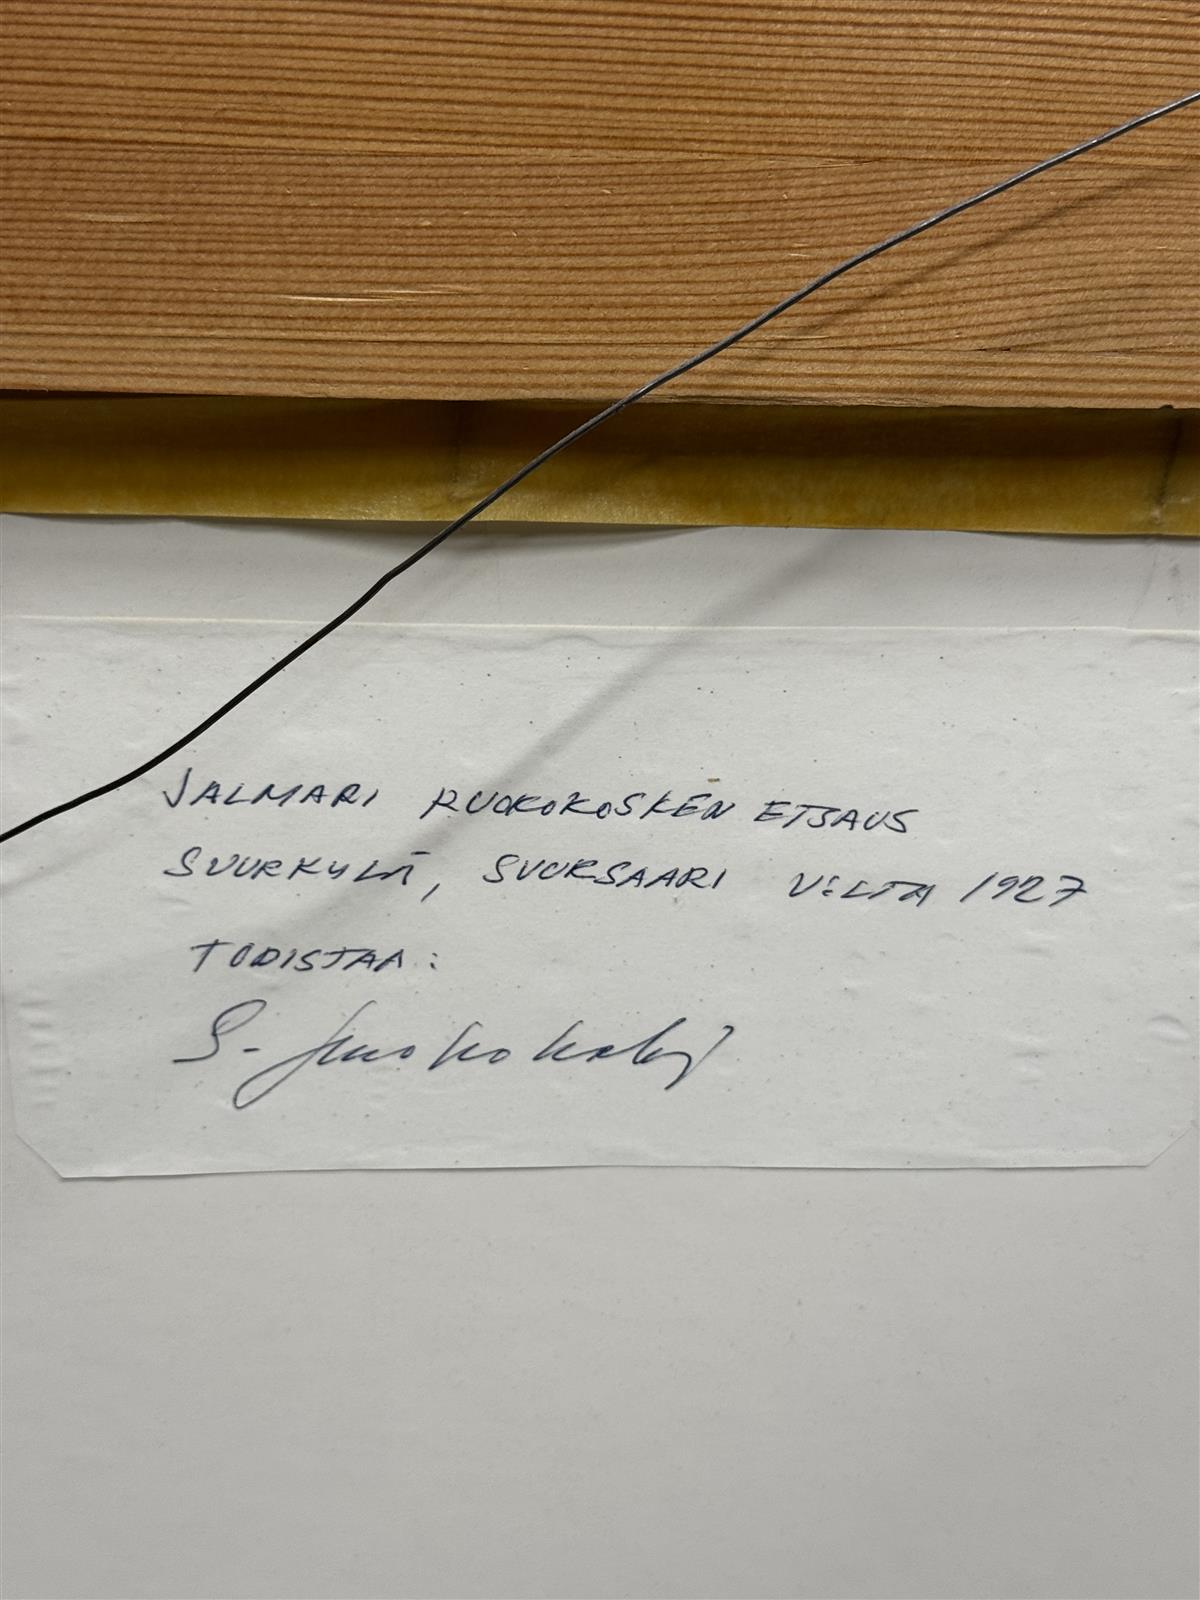 JALMARI RUOKOKOSKEN ETSAUS
SUURKYLÄ, SUURSAARI V:LTA 1927
TODISTAA:
S. Ruokokoski